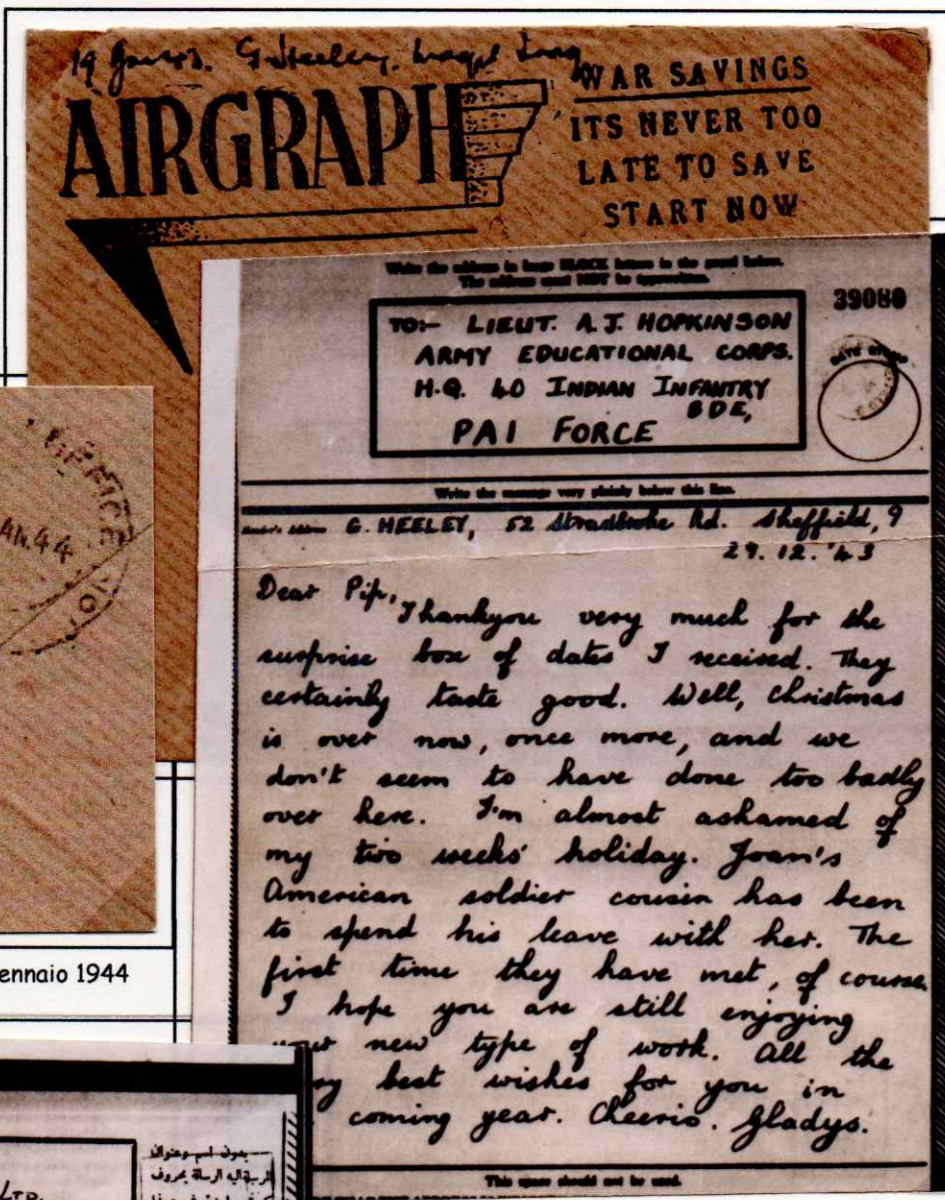 G. Heeley.
AIRGRAPH
WAR SAVINGS
ITS NEVER TOO
LATE TO SAVE
START NOW
Write the address in large BLOCK letters in the panel below.
The address must NOT be typewritten.
39080
TO:- LIEUT. A.J. HOPKINSON
ARMY EDUCATIONAL CORPS.
H.Q. 40 INDIAN INFANTRY
BDE,
PAI FORCE
DATE STAMP
Write the message very plainly below this line.
Sender's Address G. HEELEY, 52 Stradbroke Rd. Sheffield, 9
29. 12. '43
Dear Pip,
Thankyou very much for the
surprise box of dates I received. They
certainly taste good. Well, Christmas
is over now, once more, and we
don't seem to have done too badly
over here. I'm almost ashamed of
my two weeks' holiday. Joan's
American soldier cousin has been
to spend his leave with her. The
first time they have met, of course.
I hope you are still enjoying
your new type of work. All the
best wishes for you in
coming year. Cheerio. Gladys.
This space should not be used.
AN.44
ennaio 1944
LTD.
بدون اسم وعنوان
المرسل اليه الرسالة بحروف